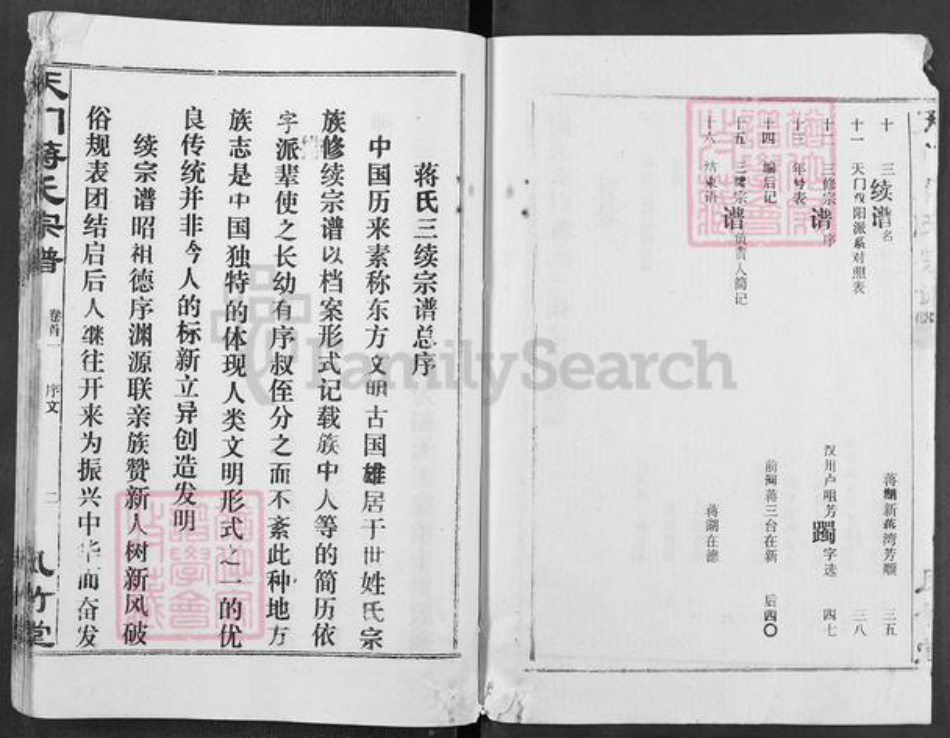 十 三续谱名 蒋湖新蒋湾芳顺 三五
十一 天门汉阳派系对照表 三八
十二 三修宗谱序 汉川卢咀芳躅字选 四七
十三 年号表
十四 编后记 前河蒋三台在新 后四〇
十五 三续谱负责人简记
十六 结束语 蒋湖在德
蒋氏三续宗谱总序
中国历来素称东方文明古国雄居于世姓氏宗
族修续宗谱以档案形式记载族中人等的简历依
字派辈使之长幼有序叔侄分之而不紊此种地方
族志是中国独特的体现人类文明形式之一的优
良传统并非今人的标新立异创造发明
续宗谱昭祖德序渊源联亲族赞新人树新风破
俗规表团结启后人继往开来为振兴中华而奋发
天门蒋氏宗谱 卷首一 序文 二 风竹堂
FamilySearch